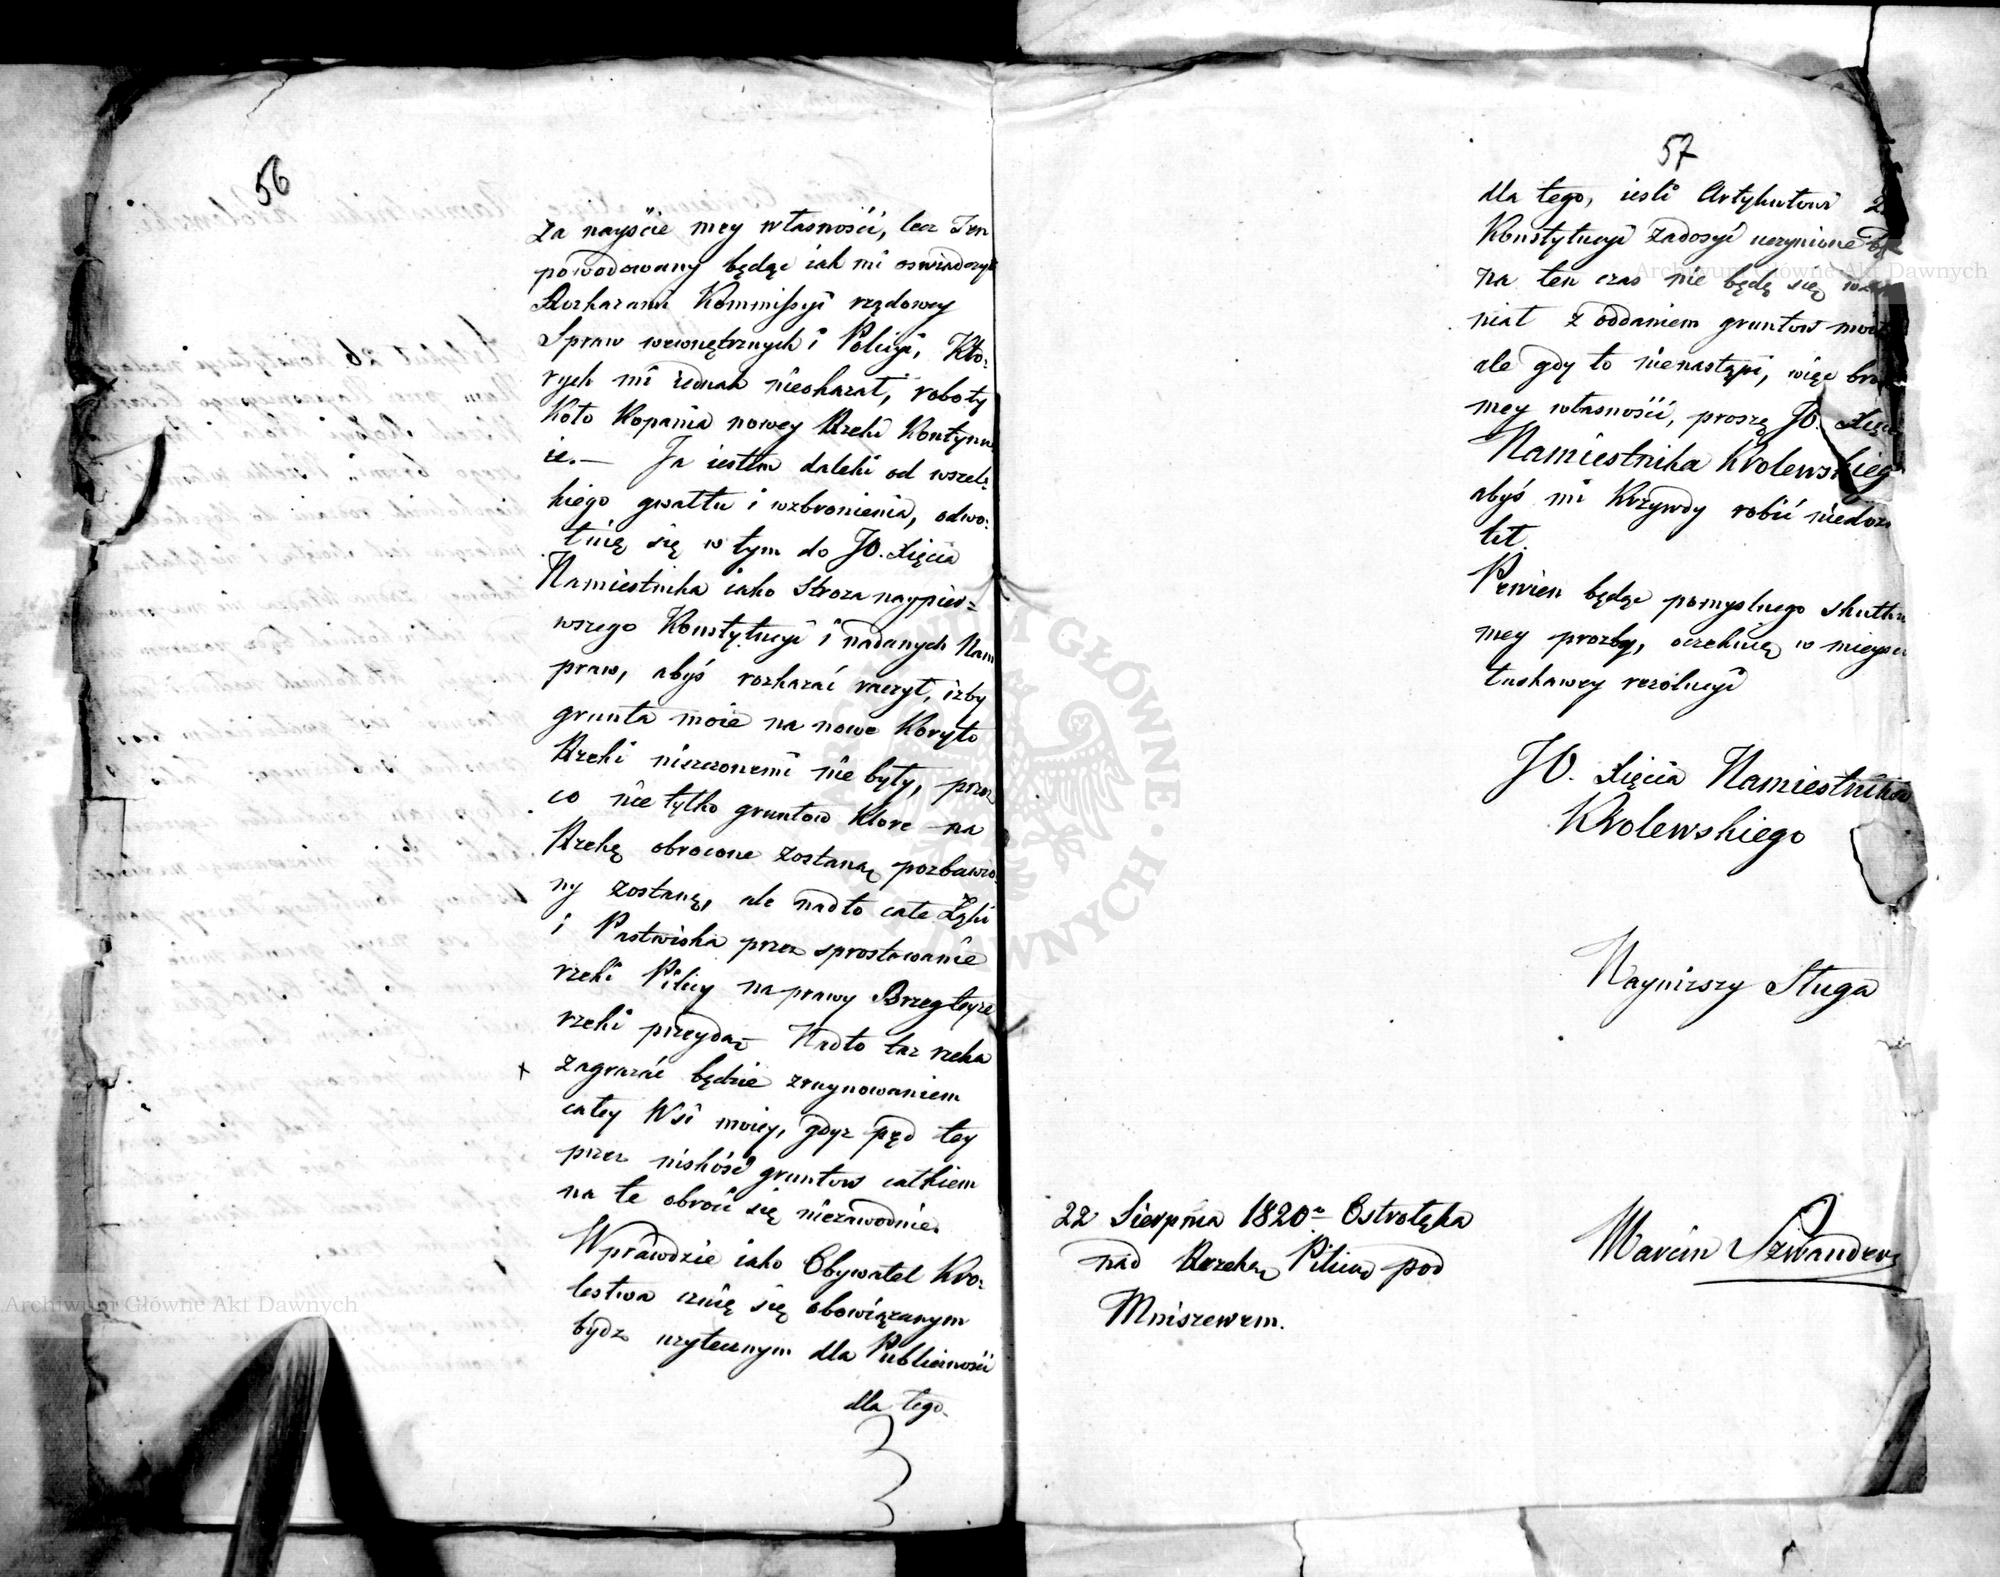 56
za nayście mey własności, lecz Ten
powodowany będąc iak mi oswiadczył
Rozkazami Kommissyi rządowey
Spraw wewnętrznych i Policyi, Kto-
rych mi iednak nieokazał, roboty
koło kopania nowey Rzeki kontynu
ie.— Ja iestem daleki od wszel-
kiego gwałtu i wzbronienia, odwo-
łuię się w tym do JO. Xięcia
Namiestnika iako Stroza naypier-
wszego Konstytucyi i nadanych Nam
praw, abyś rozkazać raczył, izby
grunta moie na nowe Koryto
Rzeki niszczonemi nie były, przez
co nie tylko gruntow ktore na
Rzekę obrocone zostaną pozbawio-
ny zostanę, ale nadto całe Łąki
i Pastwiska przez sprostowanie
rzeki Pilicy na prawy Brzeg teyze
rzeki przeydą Nadto taz rzeka
zagrazać będzie zruynowaniem
całey Wsi moiey, gdyz pęd tey
przez niskość gruntow całkiem
na te obroci się niezawodnie.
Wprawdzie iako Obywatel Kro-
lestwa czuię się obowiązanym
bydz uzytecznym dla Publiczności
dla tego
57
dla tego, iesli Artykułowi
Konstytucyi zadosyć uczynione
na ten czas nie będę się
niał z oddaniem gruntow
ale gdy to nienastąpi, więc
mey własności, proszę JO. Xięcia
Namiestnika Krolewskieg
abyś mi Krzywdy robić niedozwo
lił.
Pewien będąc pomyslnego skutku
mey prozby, oczekuię w mieyscu
łaskawey rezolucyi
JO. Xięcia Namiestnika
Krolewskiego
Naynizszy Sługa
22 Sierpnia 1820 Ostrołęka
nad Rzeką Pilicą pod
Mniszewem.
Marcin
Archiwum Główne Akt Dawnych
Archiwum Główne Akt Dawnych
ARCHIWUM GŁÓWNE AKT DAWNYCH